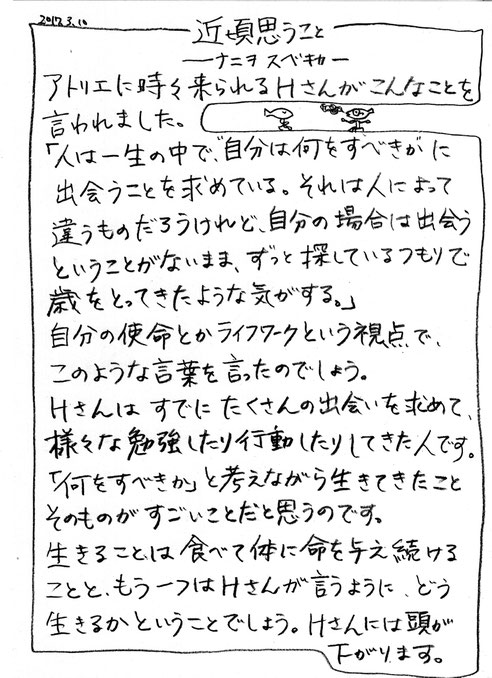 2017.3.10
近頃思うこと
―ナニヲ スベキカ―
アトリエに時々来られるHさんがこんなことを
言われました。
「人は一生の中で、自分は何をすべきかに
出会うことを求めている。それは人によって
違うものだろうけれど、自分の場合は出会う
ということがないまま、ずっと探しているつもりで
歳をとってきたような気がする。」
自分の使命とかライフワークという視点で、
このような言葉を言ったのでしょう。
Hさんは すでに たくさんの出会いを求めて、
様々な勉強したり行動したりしてきた人です。
「何をすべきか」と考えながら生きてきたこと
そのものが すごいことだと思うのです。
生きることは 食べて体に命を与え続ける
ことと、もう一つはHさんが言うように、どう
生きるかということでしょう。Hさんには頭が
下がります。